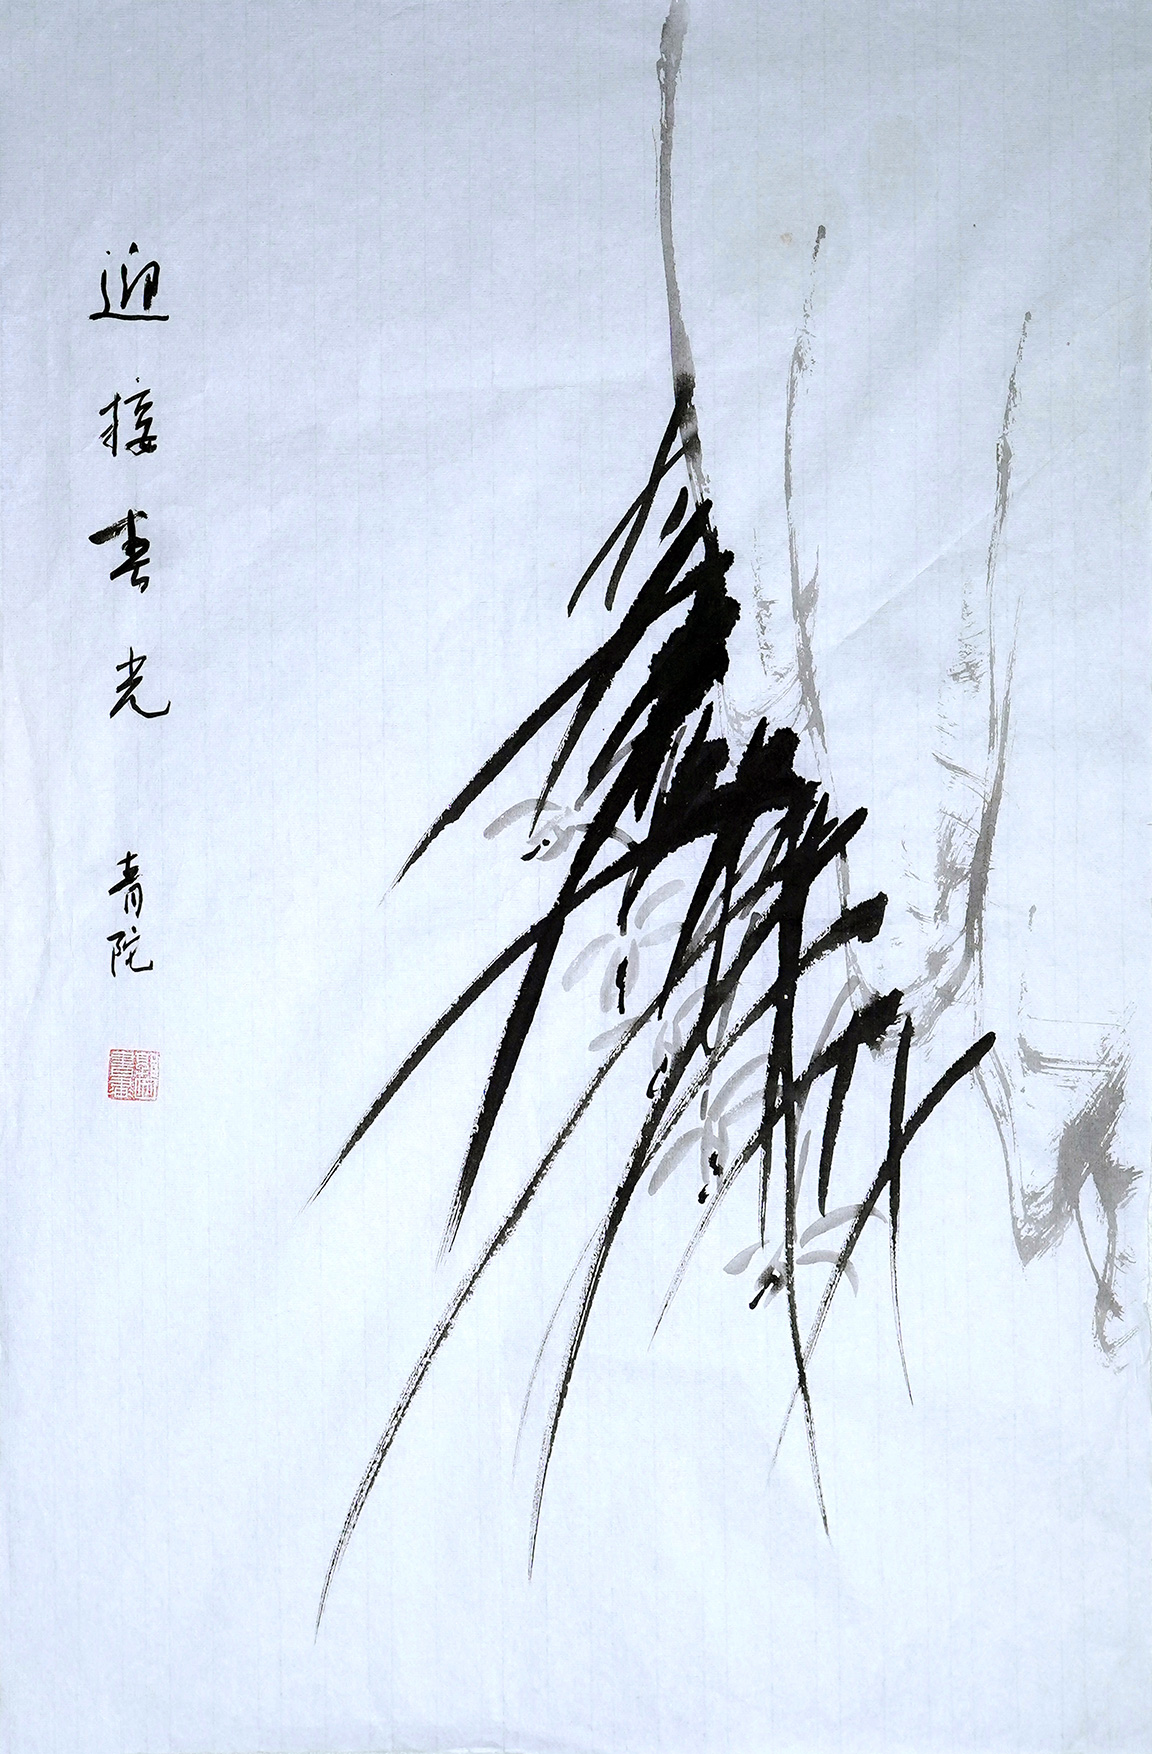 迎接春光
青院